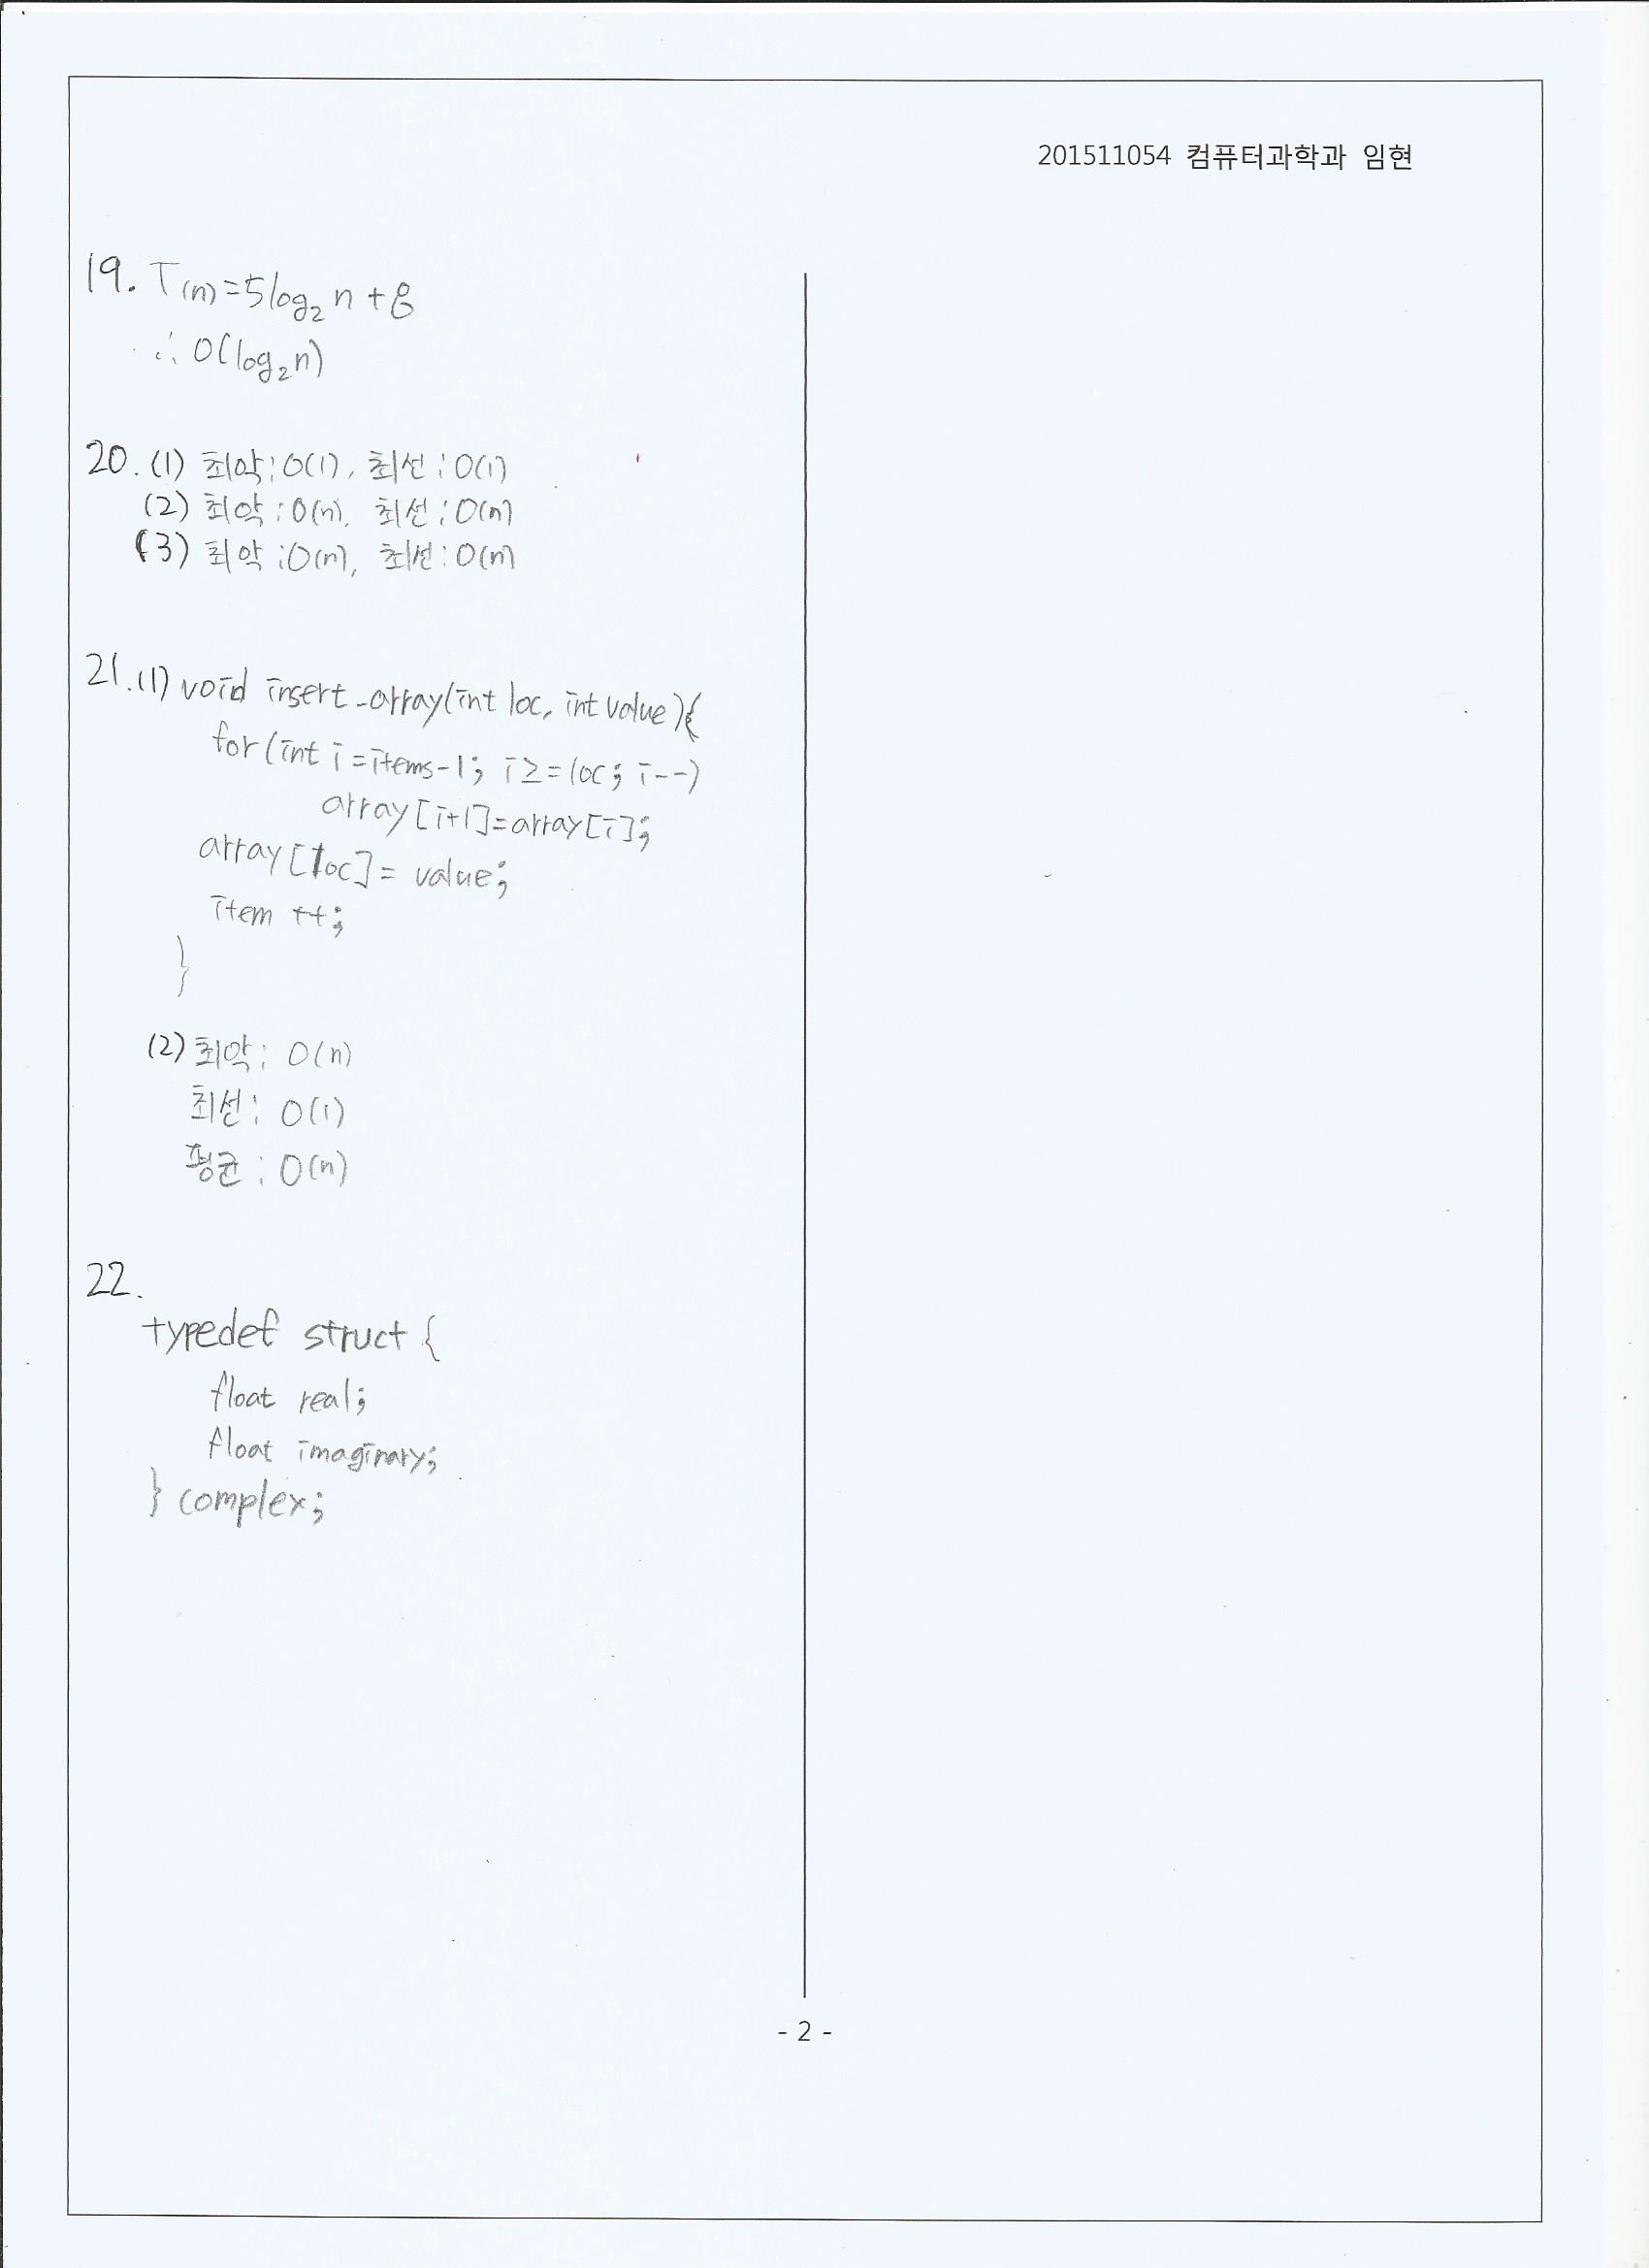 201511054 컴퓨터과학과 임현
19. T(n)=5log₂n+8
∴ O(log₂n)
20. (1) 최악:O(1), 최선:O(1)
(2) 최악:O(n), 최선:O(n)
(3) 최악:O(n), 최선:O(n)
21. (1) void insert_array(int loc, int value){
for(int i=items-1; i≥=loc; i--)
array[i+1]=array[i];
array[loc]= value;
item ++;
}
(2) 최악: O(n)
최선: O(1)
평균: O(n)
22.
typedef struct {
float real;
float imaginary;
} complex;
- 2 -